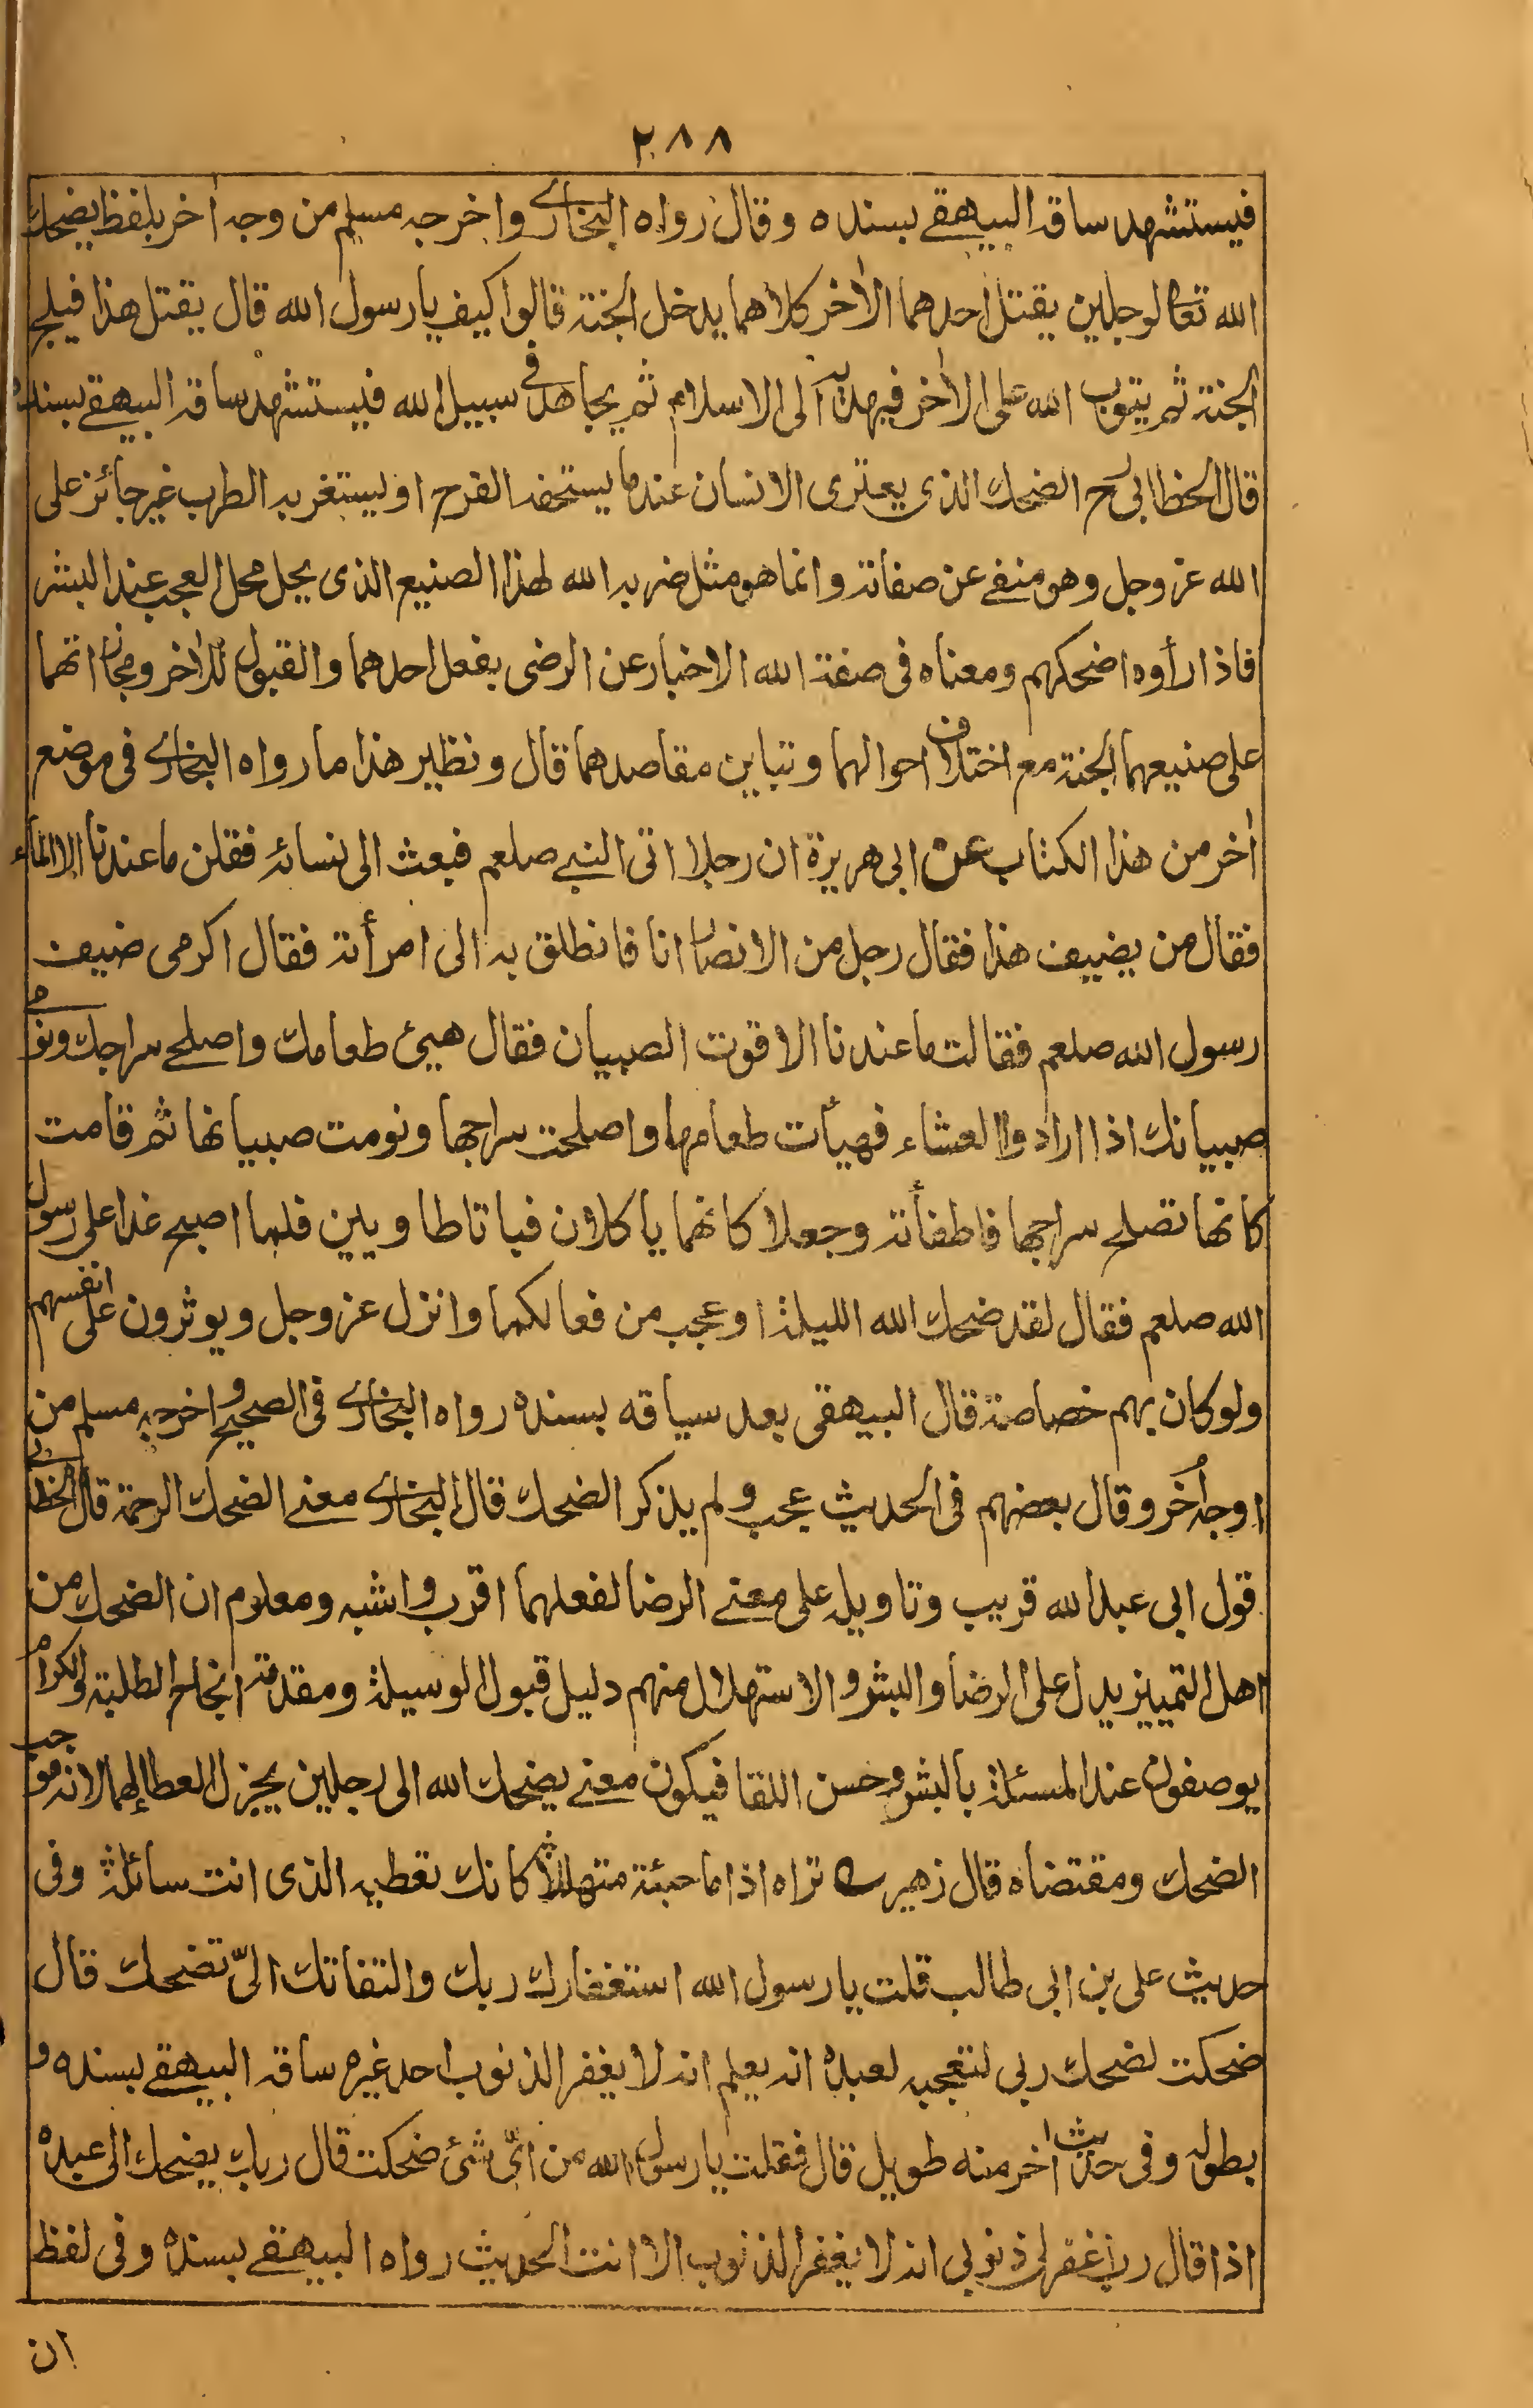 ٢٨٨
فيستشهد ساقه البيهقے بسنده وقال رواه البخارے واخرجه مسلم من وجه اٰخر بلفظ يضحك
الله تعالى لرجلين يقتل احدهما الاٰخر كلاهما يدخل الجنة قالوا كيف يا رسول الله قال يقتل هذا فيلج
الجنة ثم يتوب الله على الاٰخر فيهديه الى الاسلام ثم يجاهد فى سبيل الله فيستشهد ساقه البيهقے بسنده
قال الخطابى رح الضحك الذى يعترى الانسان عندما يستخفه الفرح او يستغربه الطرب غير جائز على
الله عز وجل وهو منفے عن صفاته وانما هو مثل ضربه الله لهذا الصنيع الذى يحل محل العجب عند البشر
فاذا رأوه اضحكهم ومعناه فى صفة الله الاخبار عن الرضى بفعل احدهما والقبول للاٰخر ومجازاتهما
على صنيعهما الجنة مع اختلاف احوالهما وتباين مقاصدهما قال ونظير هذا ما رواه البخارے فى موضع
اٰخر من هذا الكتاب عن ابى هريرة ان رجلا اتى النبے صلعم فبعث الى نسائه فقلن ما عندنا الا الماء
فقال من يضيف هذا فقال رجل من الانصار انا فانطلق به الى امرأته فقال اكرمى ضيف
رسول الله صلعم فقالت ما عندنا الا قوت الصبيان فقال هيئ طعامك واصلحے سراجك ونومے
صبيانك اذا ارادوا العشاء فهيأت طعامها واصلحت سراجها ونومت صبيانها ثم قامت
كانها تصلح سراجها فاطفأته وجعلا كانهما ياكلان فباتا طاويين فلما اصبح غدا على رسول
الله صلعم فقال لقد ضحك الله الليلة او عجب من فعالكما وانزل عز وجل ويوثرون على انفسهم
ولو كان بهم خصاصة قال البيهقى بعد سياقه بسنده رواه البخارے فى الصحيح واخرجه مسلم من
اوجه اُخَر وقال بعضهم فى الحديث عجب ولم يذكر الضحك قال البخارے معنے الضحك الرحمة قال الخطابے
قول ابى عبد الله قريب وتاويله على معنے الرضا لفعلهما اقرب واشبه ومعلوم ان الضحك من
اهل التمييز يدل على الرضا والبشر والاستهلال منهم دليل قبول الوسيلة ومقدمة انجاح الطلبة والكرام
يوصفون عند المسئلة بالبشر وحسن اللقا فيكون معنے يضحك الله الى رجلين يجزل العطا لهما لانه موجب
الضحك ومقتضاه قال زهير ؎ تراه اذا ما جئته متهللا كانك تعطيه الذى انت سائله وفى
حديث على بن ابى طالب قلت يا رسول الله استغفارك ربك والتفاتك الىّ تضحك قال
ضحكت لضحك ربى لتعجبه لعبده انه يعلم انه لا يغفر الذنوب احد غيره ساقه البيهقے بسنده و
بطوله وفى حديث اٰخر منه طويل قال فقلت يا رسول الله من اىّ شئ ضحكت قال ربك يضحك الى عبده
اذا قال رب اغفر لى ذنوبى انه لا يغفر الذنوب الا انت الحديث رواه البيهقے بسنده وفى لفظ
ان